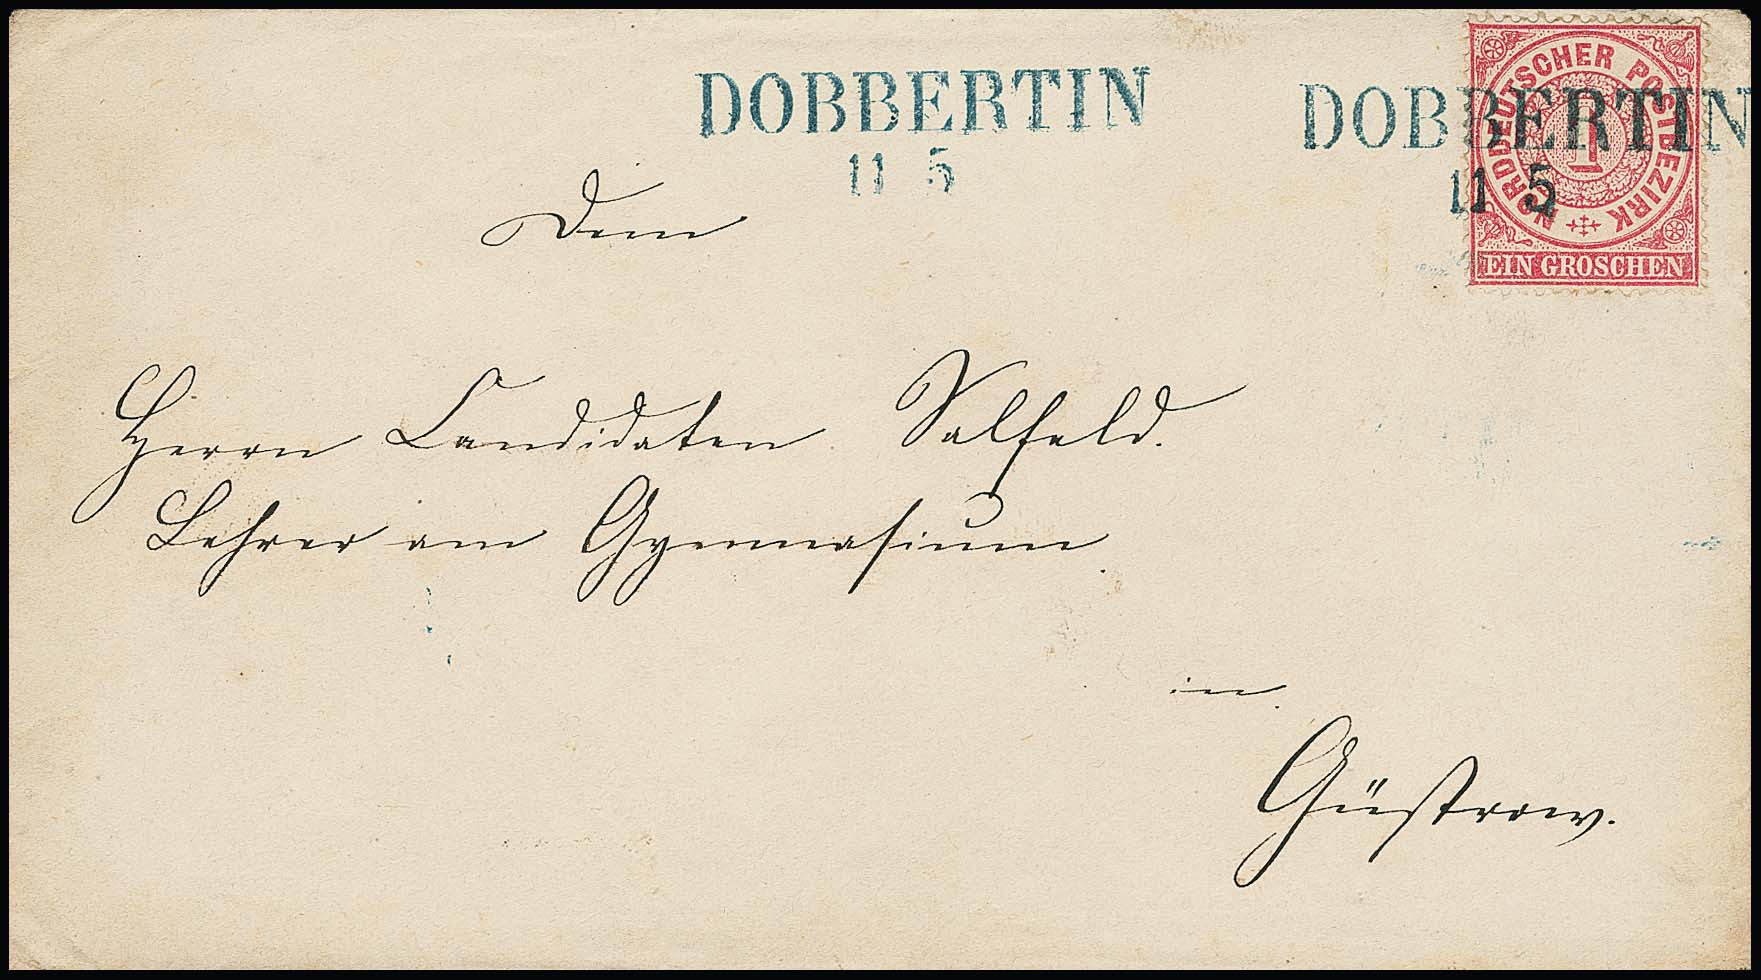 DOBBERTIN
11 5
DOBBERTIN
11 5
NORDDEUTSCHER POSTBEZIRK
1
EIN GROSCHEN
Dem
Herrn Candidaten Salfeld.
Lehrer am Gymnasium
in
Güstrow.